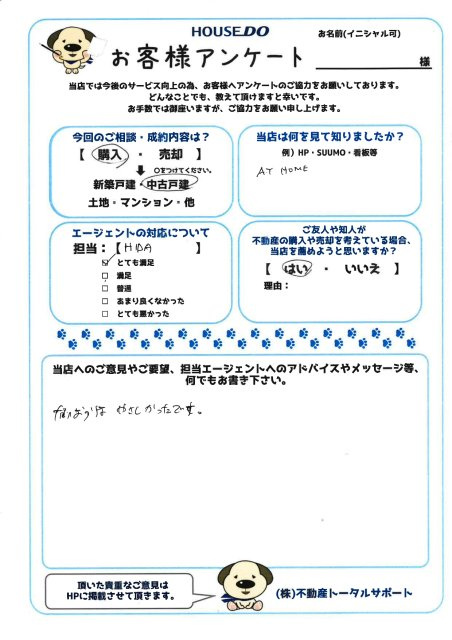 HOUSEDO
お名前(イニシャル可)
お客様アンケート
様
当店では今後のサービス向上の為、お客様へアンケートのご協力をお願いしております。
どんなことでも、教えて頂けますと幸いです。
お手数では御座いますが、ご協力をお願い申し上げます。
今回のご相談・成約内容は?
【 購入 ・ 売却 】
○をつけてください。
新築戸建・中古戸建
土地・マンション・他
当店は何を見て知りましたか?
例)HP・SUUMO・看板等
AT HOME
エージェントの対応について
担当:【 】
とても満足
満足
普通
あまり良くなかった
とても悪かった
ご友人や知人が
不動産の購入や売却を考えている場合、
当店を薦めようと思いますか?
【 はい ・ いいえ 】
理由:
当店へのご意見やご要望、担当エージェントへのアドバイスやメッセージ等、
何でもお書き下さい。
やさしかったです。
頂いた貴重なご意見は
HPに掲載させて頂きます。
(株)不動産トータルサポート